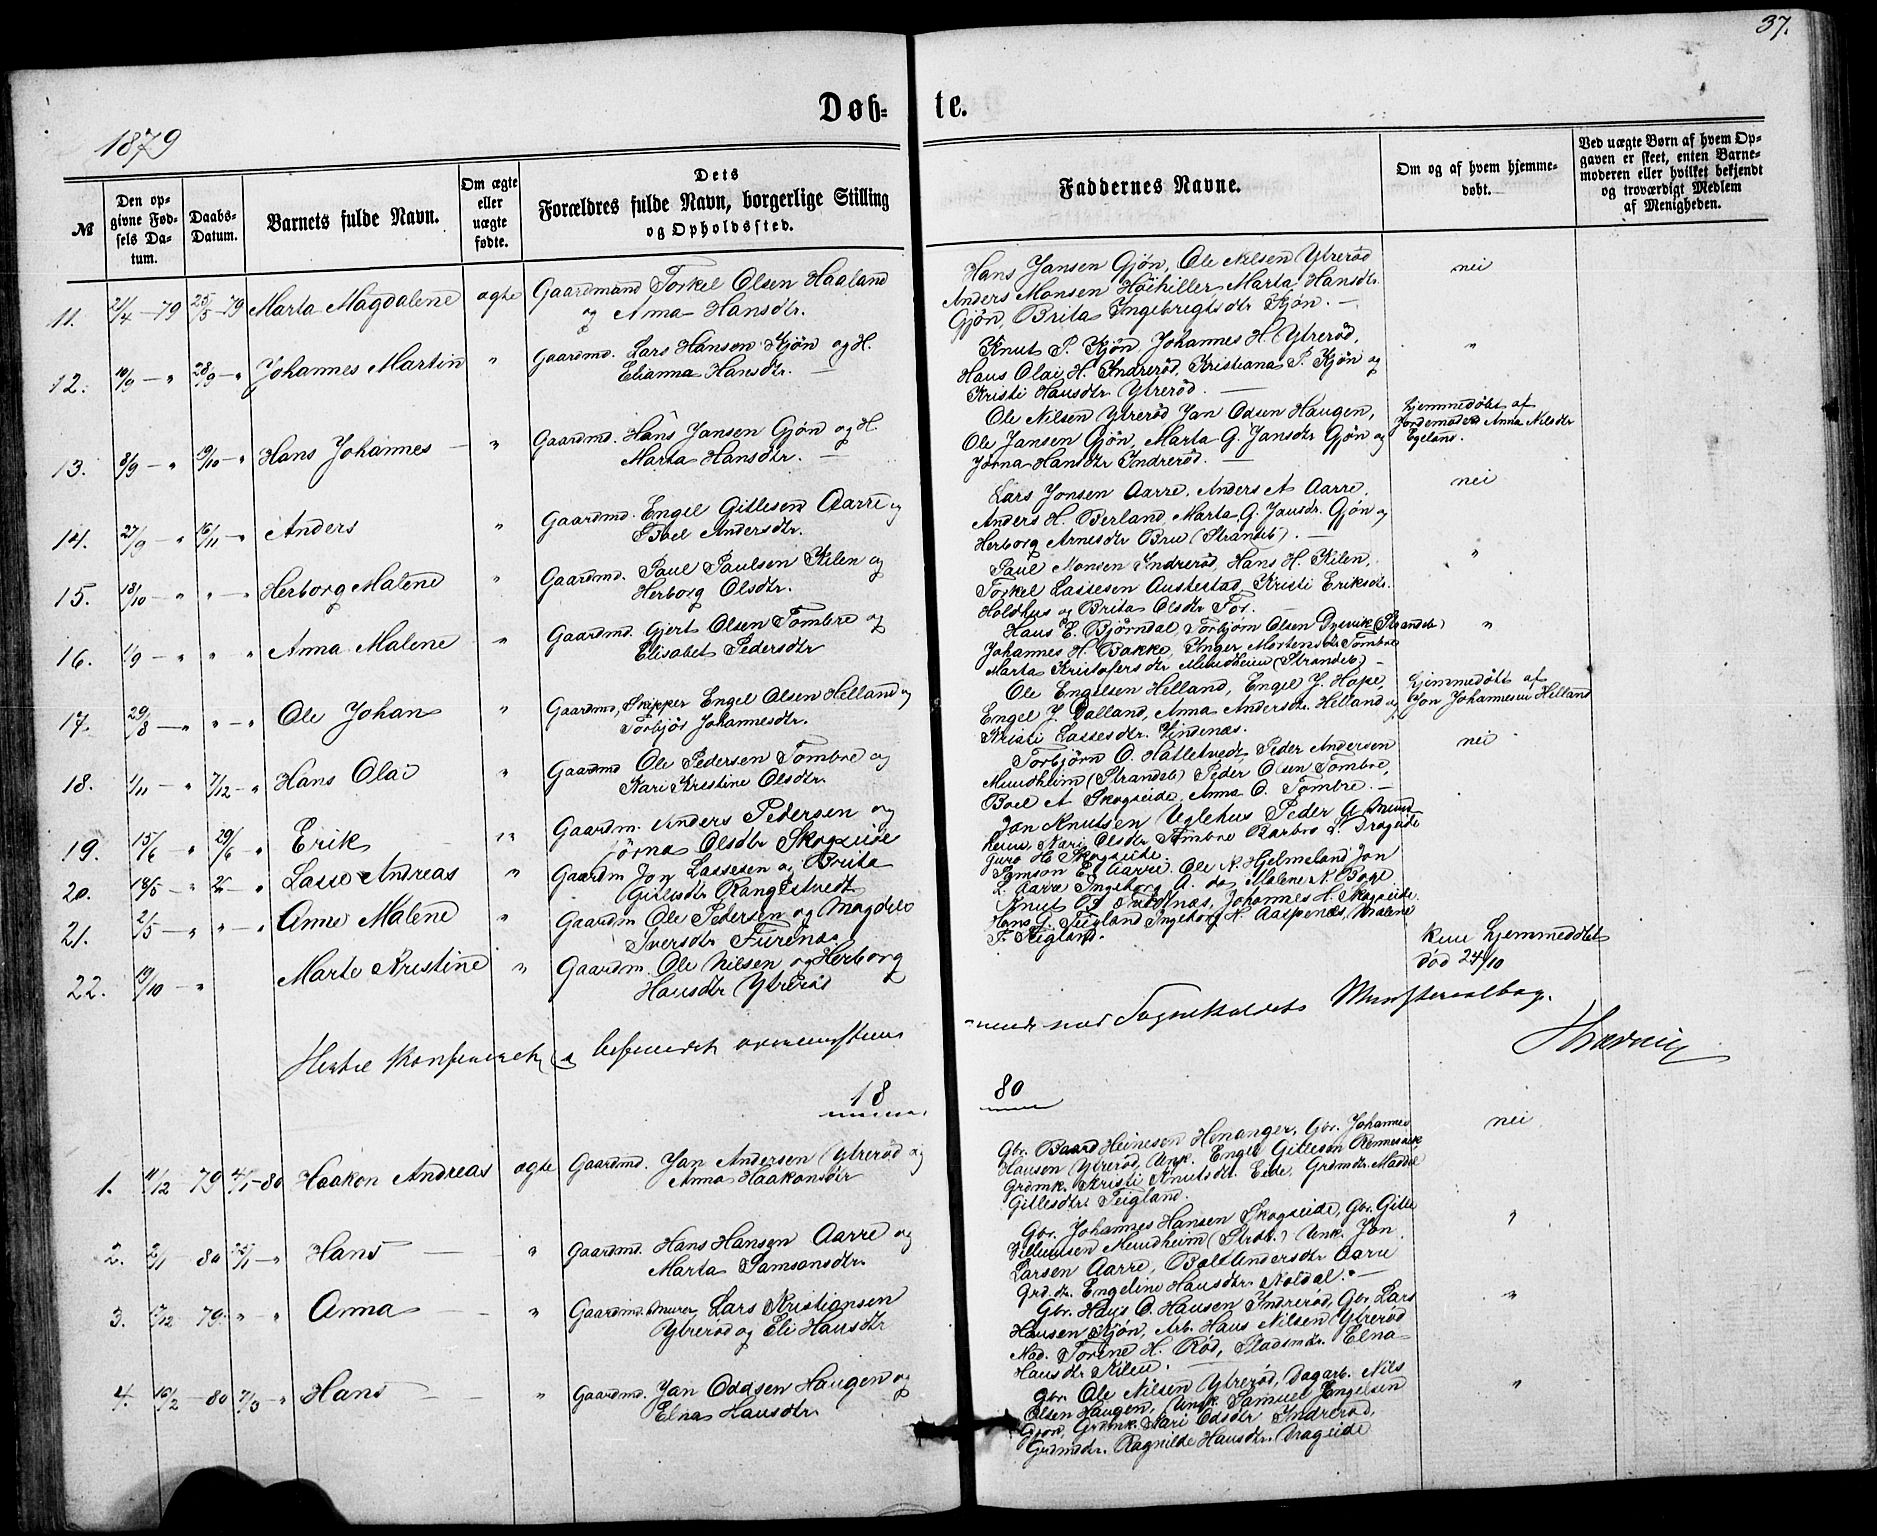 37.
Døb- te.
1879
№
Den op-
givne Fød-
sels Da-
tum.
Daabs-
Datum.
Barnets fulde Navn.
Om ægte
eller
uægte
fødte.
Dets
Forældres fulde Navn, borgerlige Stilling
og Opholdssted.
Faddernes Navne.
Om og af hvem hjemme-
døbt.
Ved uægte Børn af hvem Op-
gaven er skeet, enten Barne-
moderen eller hvilket bekjendt
og troværdigt Medlem
af Menigheden.
11. 21/4 - 79 25/5 - 79 Marta Magdalene ægte Gaardmand Torkel Olsen Haaland
og Anna Hansdtr.
Hans Jansen Gjøn, Ole Nilsen Ytrerød
Anders Monsen Høihiller Marta Hansdtr.
Gjøn, Brita Ingebrigtsdtr Kjøn. -
nei
12. 10/9 - " 28/9 - " Johannes Martin " Gaardmd. Lars Hansen Kjøn og H.
Elianna Hansdtr. -
Knut P. Kjøn, Johannes H. Ytrerød,
Hans Olai H. Indrerød, Kristiana P. Kjøn og
Kristi Hansdtr Ytrerød. -
"
13. 8/9 - " 19/10 - " Hans Johannes - " Gaardmd. Hans Jansen Gjøn og H.
Marta Hansdtr. -
Ole Nilsen Ytrerød Jan Odsen Haugen,
Ole Jansen Gjøn, Marta G. Jansdtr Gjøn og
Jørna Hansdtr Indrerød. -
hjemmedøbt af
Jordemoder Anna Nilsdtr
Egeland.
14. 27/9 - " 16/11 - " Anders " Gaardmd. Engel Gillesen Aarre og
Boel Andersdtr.
Lars Jonsen Aarre, Anders A Aarre,
Anders H. Berland, Marta G. Jansdr. Gjøn og
Herborg Arnesdtr Bru (Strandeb). -
nei
15. 18/10 - " " - " Herborg Malene " Gaardmd. Paul Paulsen Kilen og
Herborg Olsdtr.
Paul Monsen Indrerød, Hans H. Kilen,
Torkel Lassesen Austestad, Kristi Eriksdr.
Holdhus og Brita Olsdtr Før.
"
16. 1/9 - " " " Anna Malene " Gaardmd. Gjert Olsen Tombre og
Elisabet Pedersdtr
Hans E. Bjørndal, Torbjørn Olsen Dysvik (Strandeb)
Johannes H. Bakke, Inger Mortensdtr Tombre
Marta Kristofersdtr Mundheim (Strandeb) -
"
17. 29/8 - " " - " Ole Johan " Gaardmd, Skipper Engel Olsen Helland og
Torbjør Johannesdtr.
Ole Engelsen Helland, Engel J. Hope,
Engel J. Dalland, Anna Andersdtr. Helland og
Kristi Lassesdtr. Vindenæs.
hjemmedøbt af
Jon Johannesen Helland
18. 1/11 - " 7/12 - " Hans Olai " Gaardmd Ole Pedersen Tombre og
Kari Kristine Olsdtr.
Torbjørn O. Hatletvedt, Peder Andersen
Mundheim (Strandeb) Peder Olsen Tombre,
Boel A Skogseide, Anna O. Tombre. -
nei
19. 15/6 " 29/6 " Erik " Gaardm. Anders Pedersen og
Jørna Olsdtr Skogseide
Jon Knutsen Uglehus Peder A Mund-
heim, Kari Olsdtr Tombre Barbro L. Drageide
Guro H. Skogseide.
20. 18/5 - " " Lasse Andreas " Gaardm Jon Lassesen og Brita
Gillesdtr Rangestvedt
Samson E. Aarre. Ole N. Hjelmeland Jon
L. Aarre Ingeborg A. do Malene K. Boge
21. 2/5 - " " - " Anne Malene " Gaardm Ole Pedersen og Magdele
Iversdtr Furenæs.
Hans G. Teigland Ingeborg H. Aaspenæs, Malene
T. Teigland.
22. 19/10 - " Marte Kristine " Gaardm. Ole Nilsen og Herborg
Hansdtr Ytrerød
kun hjemmedøbt
død 24/10
18 80
1. 11/12 - 79 4/1 - 80 Haakon Andreas ægte Gaardmd. Jan Andersen Ytrerød og
Anna Haakonsdtr
Gbr. Baard Heinesen Henanger, Gbr. Johannes
Hansen Ytrerød, Unk. Engel Gillesen Rønnesvik
Grdmk. Kristi Knutsdtr. Eide, Grdmdr. Maddel
Gillesdtr. Teigland.
nei
2. 2/1 80 25/1 - " Hans - " Gaardmd. Hans Hansen Aarre og
Marta Samsonsdtr.
Gbr. Johannes Hansen Skogseide, Gbr. Gille
Villumsen Mundheim (Strdb.) Unk. Jon
Larsen Aarre, Boel Andersdtr Aarre
Grd.dr. Engeline Hansdtr. Noldal. -
"
3. 17/12 79 " " Anna - " Gaardmd. Murer Lars Kristiansen
Ytrerød og Eli Hansdtr
Gbr. Hans O. Hansen Indrerød, Gbr. Lars
Hansen Kjøn, Arb. Hans Nilsen Ytrerød
Mad. Torine H. Rød, Pladsmdr. Elna
Hansdtr Kilen. -
"
4. 16/2 - 80 7/3 - " Hans - " Gaardmd. Jan Oddsen Haugen og
Elna Hansdtr.
Gbr. Ole Nilsen Ytrerød, Dagarb. Nils
Olsen Haugen, Ungk. Samuel Engelsen
Gjøn, Grdmk. Kari Odsdtr Indrerød,
Grdmdtr. Ragnilde Hansdtr. Drageide
"